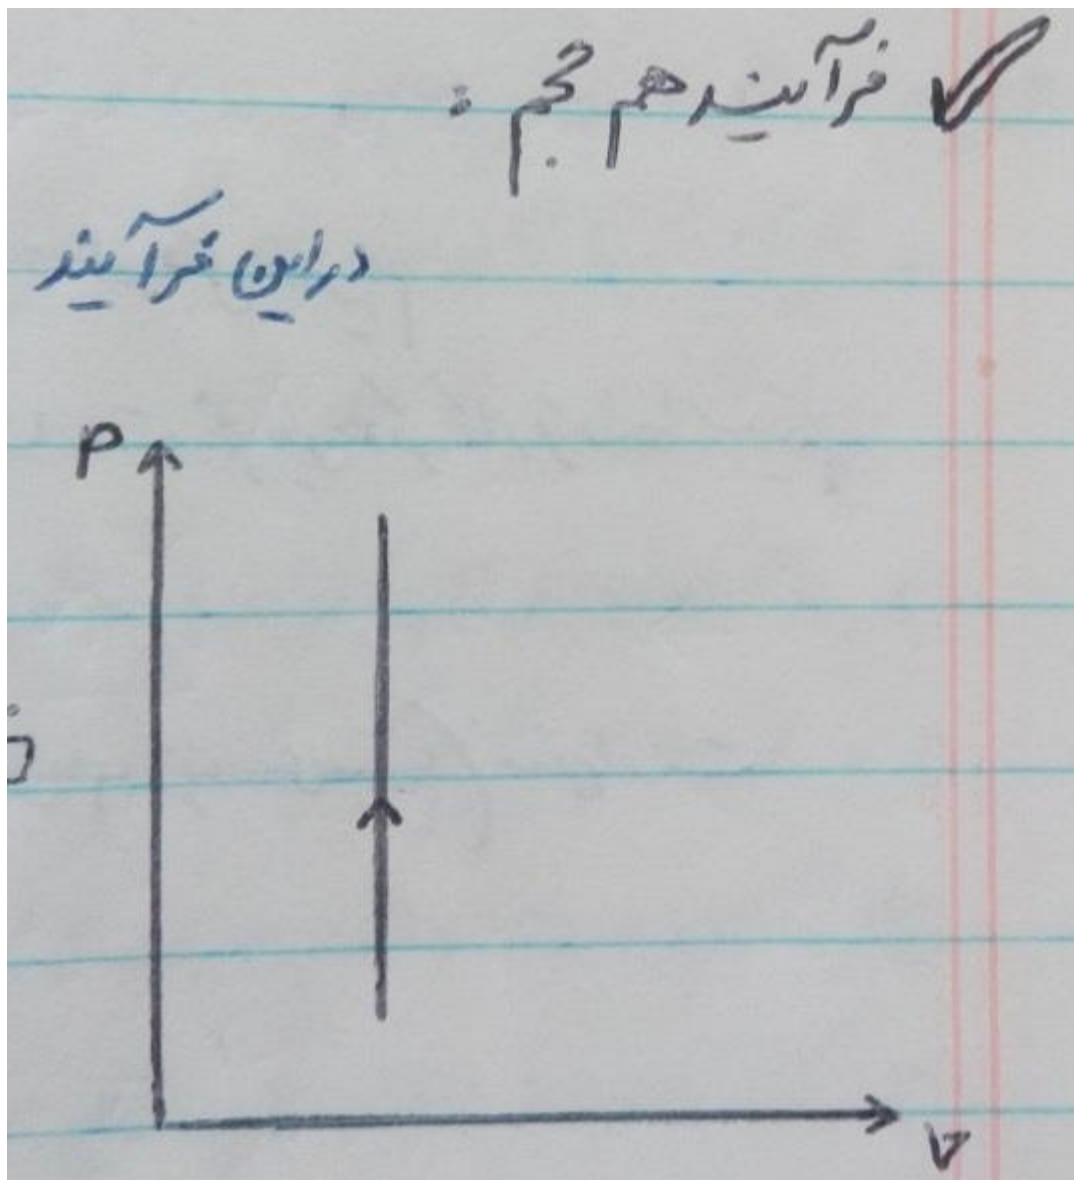 فرآیند هم حجم :
در این فرآیند
P
V